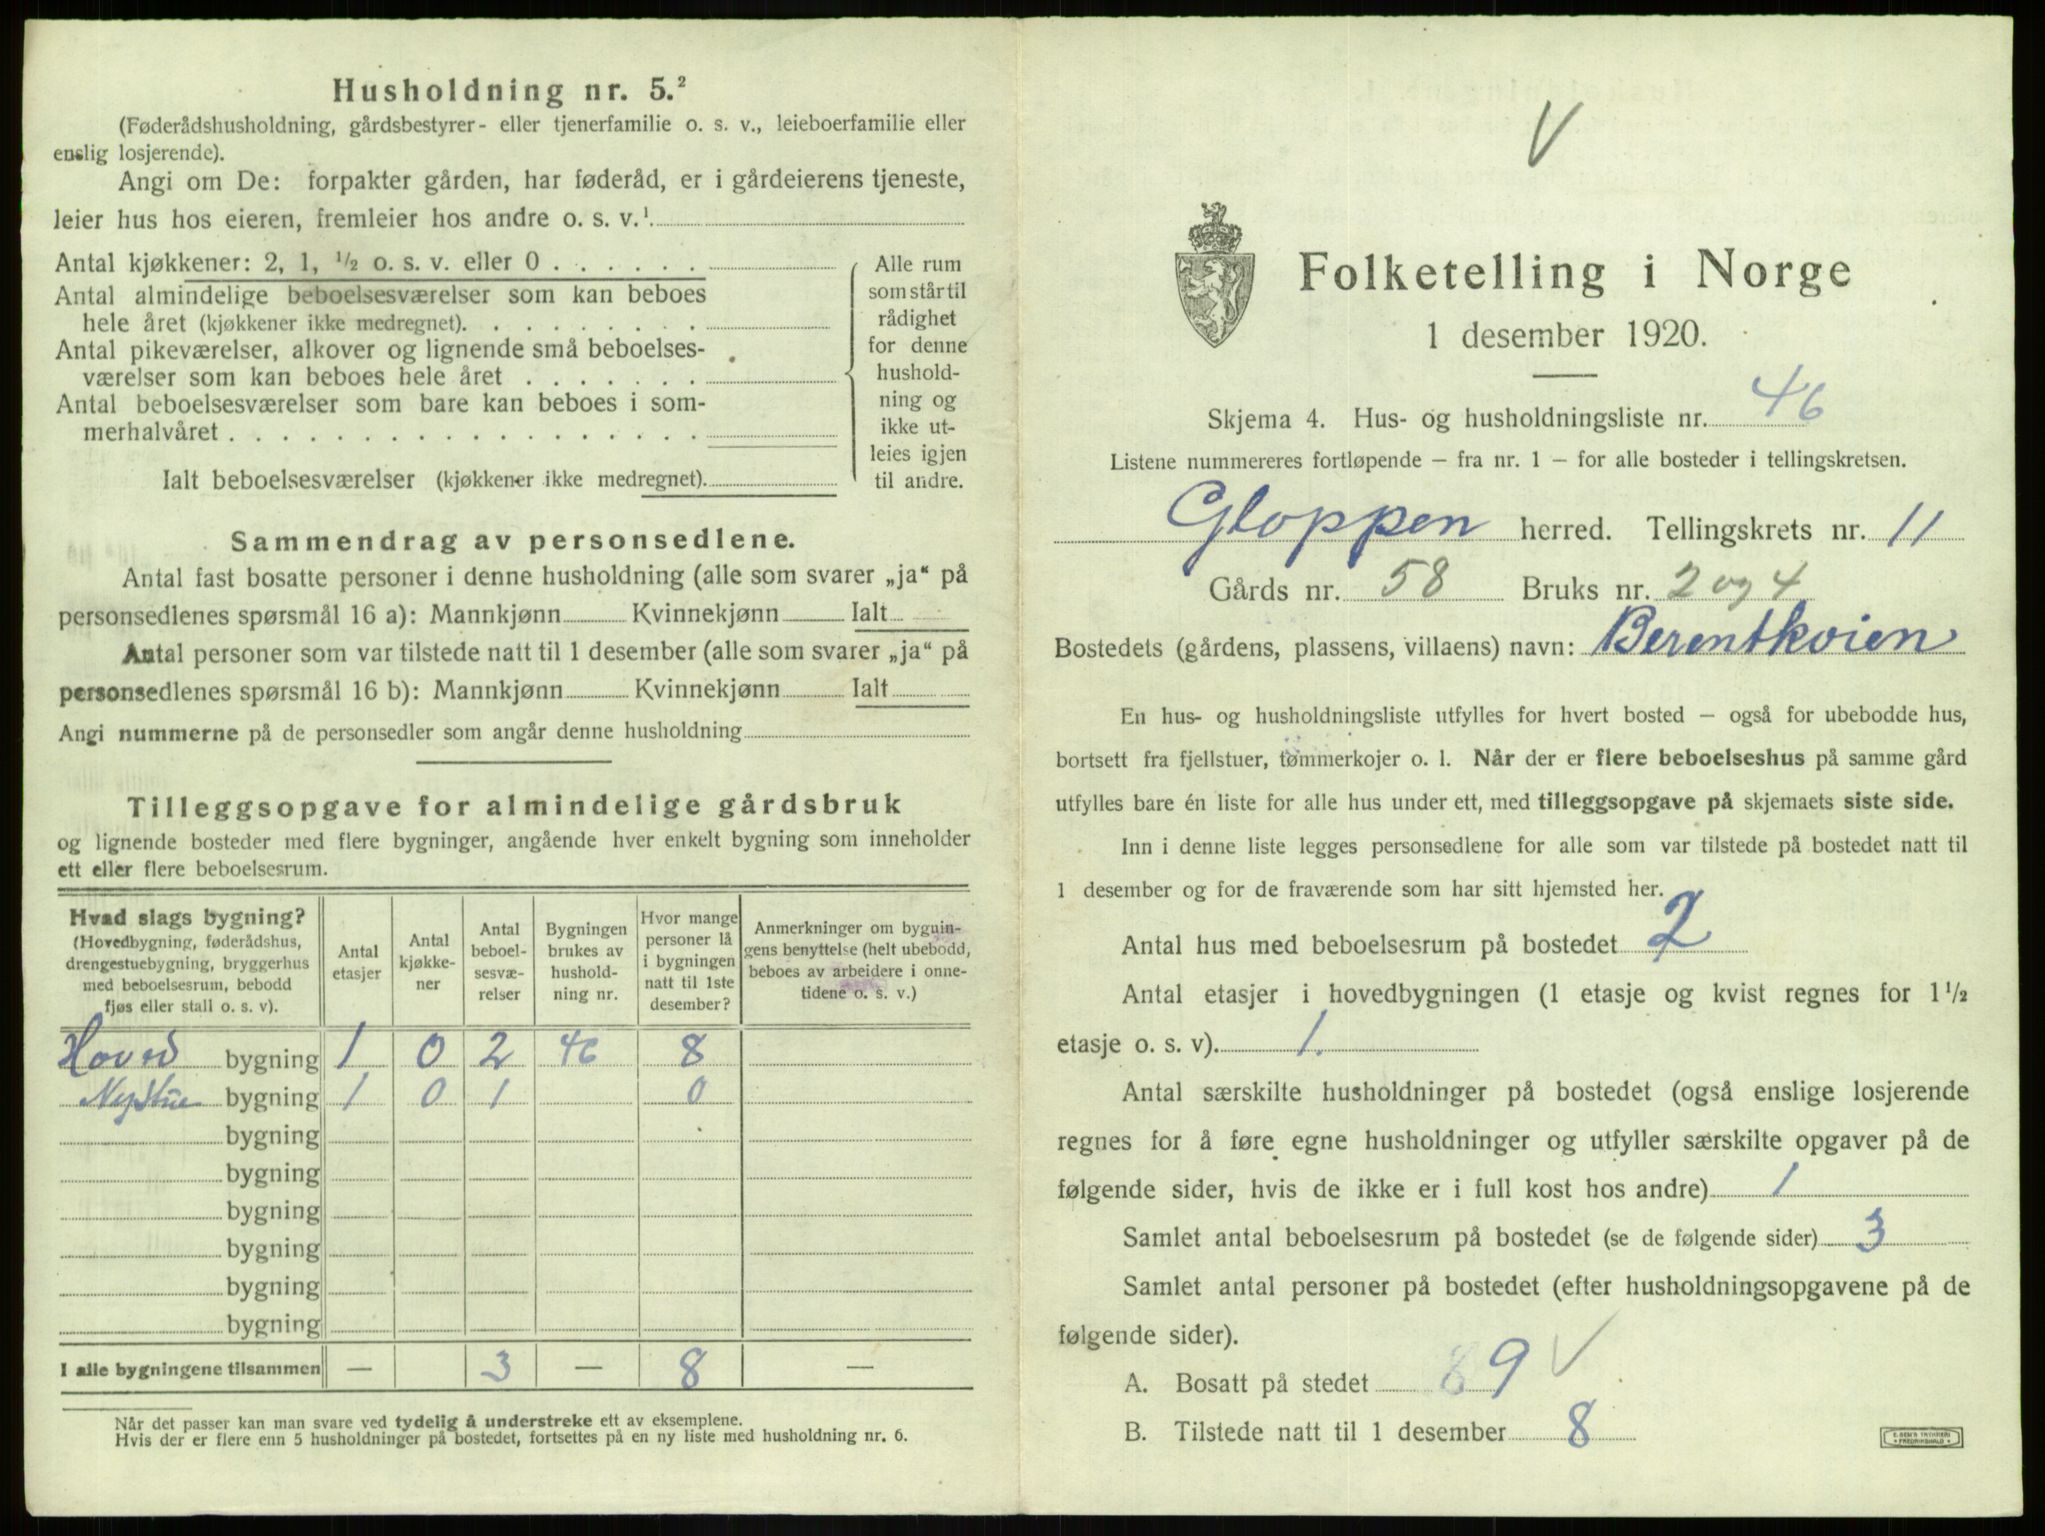 Husholdning nr. 5.²
(Føderådshusholdning, gårdsbestyrer- eller tjenerfamilie o. s. v., leieboerfamilie eller
enslig losjerende).
Angi om De: forpakter gården, har føderåd, er i gårdeierens tjeneste,
leier hus hos eieren, fremleier hos andre o. s. v.¹
Antal kjøkkener: 2, 1, ½ o. s. v. eller 0
Antal almindelige beboelsesværelser som kan beboes
hele året (kjøkkener ikke medregnet).
Antal pikeværelser, alkover og lignende små beboelses-
værelser som kan beboes hele året
Antal beboelsesværelser som bare kan beboes i som-
merhalvåret
Ialt beboelsesværelser (kjøkkener ikke medregnet)
Alle rum
som står til
rådighet
for denne
hushold-
ning og
ikke ut-
leies igjen
til andre.
Sammendrag av personsedlene.
Antal fast bosatte personer i denne husholdning (alle som svarer „ja“ på
personsedlenes spørsmål 16 a): Mannkjønn Kvinnekjønn Ialt
Antal personer som var tilstede natt til 1 desember (alle som svarer „ja“ på
personsedlenes spørsmål 16 b): Mannkjønn Kvinnekjønn Ialt
Angi nummerne på de personsedler som angår denne husholdning
Tilleggsopgave for almindelige gårdsbruk
og lignende bosteder med flere bygninger, angående hver enkelt bygning som inneholder
ett eller flere beboelsesrum.
Hvad slags bygning?
(Hovedbygning, føderådshus,
drengestuebygning, bryggerhus
med beboelsesrum, bebodd
fjøs eller stall o. s. v).
Antal
etasjer
Antal
kjøkke-
ner
Antal
beboel-
sesvæ-
relser
Bygningen
brukes av
hushold-
ning nr.
Hvor mange
personer lå
i bygningen
natt til 1ste
desember?
Anmerkninger om bygnin-
gens benyttelse (helt ubebodd,
beboes av arbeidere i onne-
tidene o. s. v.)
Hoved bygning 1 0 2 46 8
Nystue bygning 1 0 1 0
bygning
bygning
bygning
bygning
bygning
bygning
I alle bygningene tilsammen — 3 — 8 —
Når det passer kan man svare ved tydelig å understreke ett av eksemplene.
Hvis der er flere enn 5 husholdninger på bostedet, fortsettes på en ny liste med husholdning nr. 6.
V
Folketelling i Norge
1 desember 1920.
Skjema 4. Hus- og husholdningsliste nr. 46
Listene nummereres fortløpende – fra nr. 1 – for alle bosteder i tellingskretsen.
Gloppen herred. Tellingskrets nr. 11
Gårds nr. 58 Bruks nr. 2 og 4
Bostedets (gårdens, plassens, villaens) navn: Berentkvien
En hus- og husholdningsliste utfylles for hvert bosted – også for ubebodde hus,
bortsett fra fjellstuer, tømmerkojer o. l. Når der er flere beboelseshus på samme gård
utfylles bare én liste for alle hus under ett, med tilleggsopgave på skjemaets siste side.
Inn i denne liste legges personsedlene for alle som var tilstede på bostedet natt til
1 desember og for de fraværende som har sitt hjemsted her.
Antal hus med beboelsesrum på bostedet 2
Antal etasjer i hovedbygningen (1 etasje og kvist regnes for 1½
etasje o. s. v). 1.
Antal særskilte husholdninger på bostedet (også enslige losjerende
regnes for å føre egne husholdninger og utfyller særskilte opgaver på de
følgende sider, hvis de ikke er i full kost hos andre) 1
Samlet antal beboelsesrum på bostedet (se de følgende sider) 3
Samlet antal personer på bostedet (efter husholdningsopgavene på de
følgende sider).
A. Bosatt på stedet 8 9 V
B. Tilstede natt til 1 desember 8